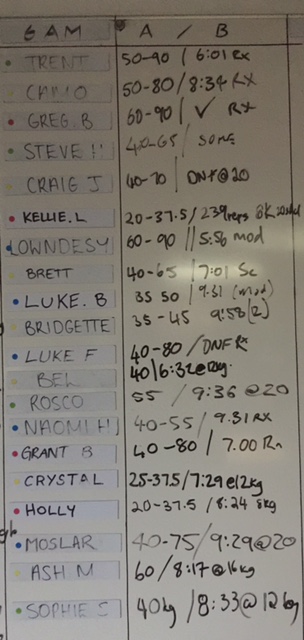 6AM A / B
TRENT 50-90 / 6:01 Rx
CAMO 50-80 / 8:34 RX
GREG.B 60-90 / ✓ RX
STEVE H 40-65 / SOME
CRAIG J 40-70 / DNF@20
KELLIE.L 20-37.5 / 239reps 8K
LOWNDESY 60-90 // 5:56 mod
BRETT 40-65 / 7:01 Sc
LUKE.B 35 50 / 9.31 (mod)
BRIDGETTE 35-45 9:58 (2)
LUKE F 40-80 / DNF Rx
BEL 40 / 6:32@8kg
ROSCO 55 / 9:36 @20
NAOMI H 40-55 / 9.31 RX
GRANT B 40-80 / 7.00 Rx
CRYSTAL 25-37.5 / 7:29@12kg
HOLLY 20-37.5 / 8:24 8kg
MOSLAR 40-75 / 9:29@20
ASH M 60 / 8:17@16kg
SOPHIE S 40kg / 8:33@12kg